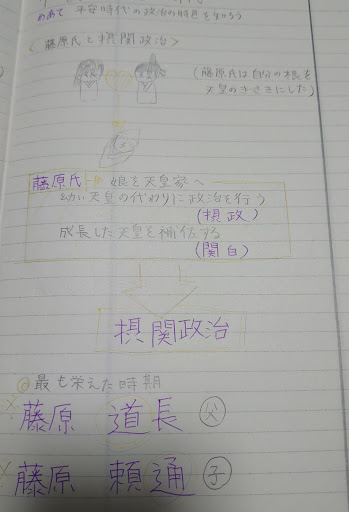 めあて 平安時代の政治の特色を知ろう
〈藤原氏と摂関政治〉
(藤原氏は自分の娘を
天皇のきさきにした)
藤原氏 娘を天皇家へ
幼い天皇の代わりに政治を行う
(摂政)
成長した天皇を補佐する
(関白)
摂関政治
◎最も栄えた時期
※藤原 道長 父
※藤原 頼通 子